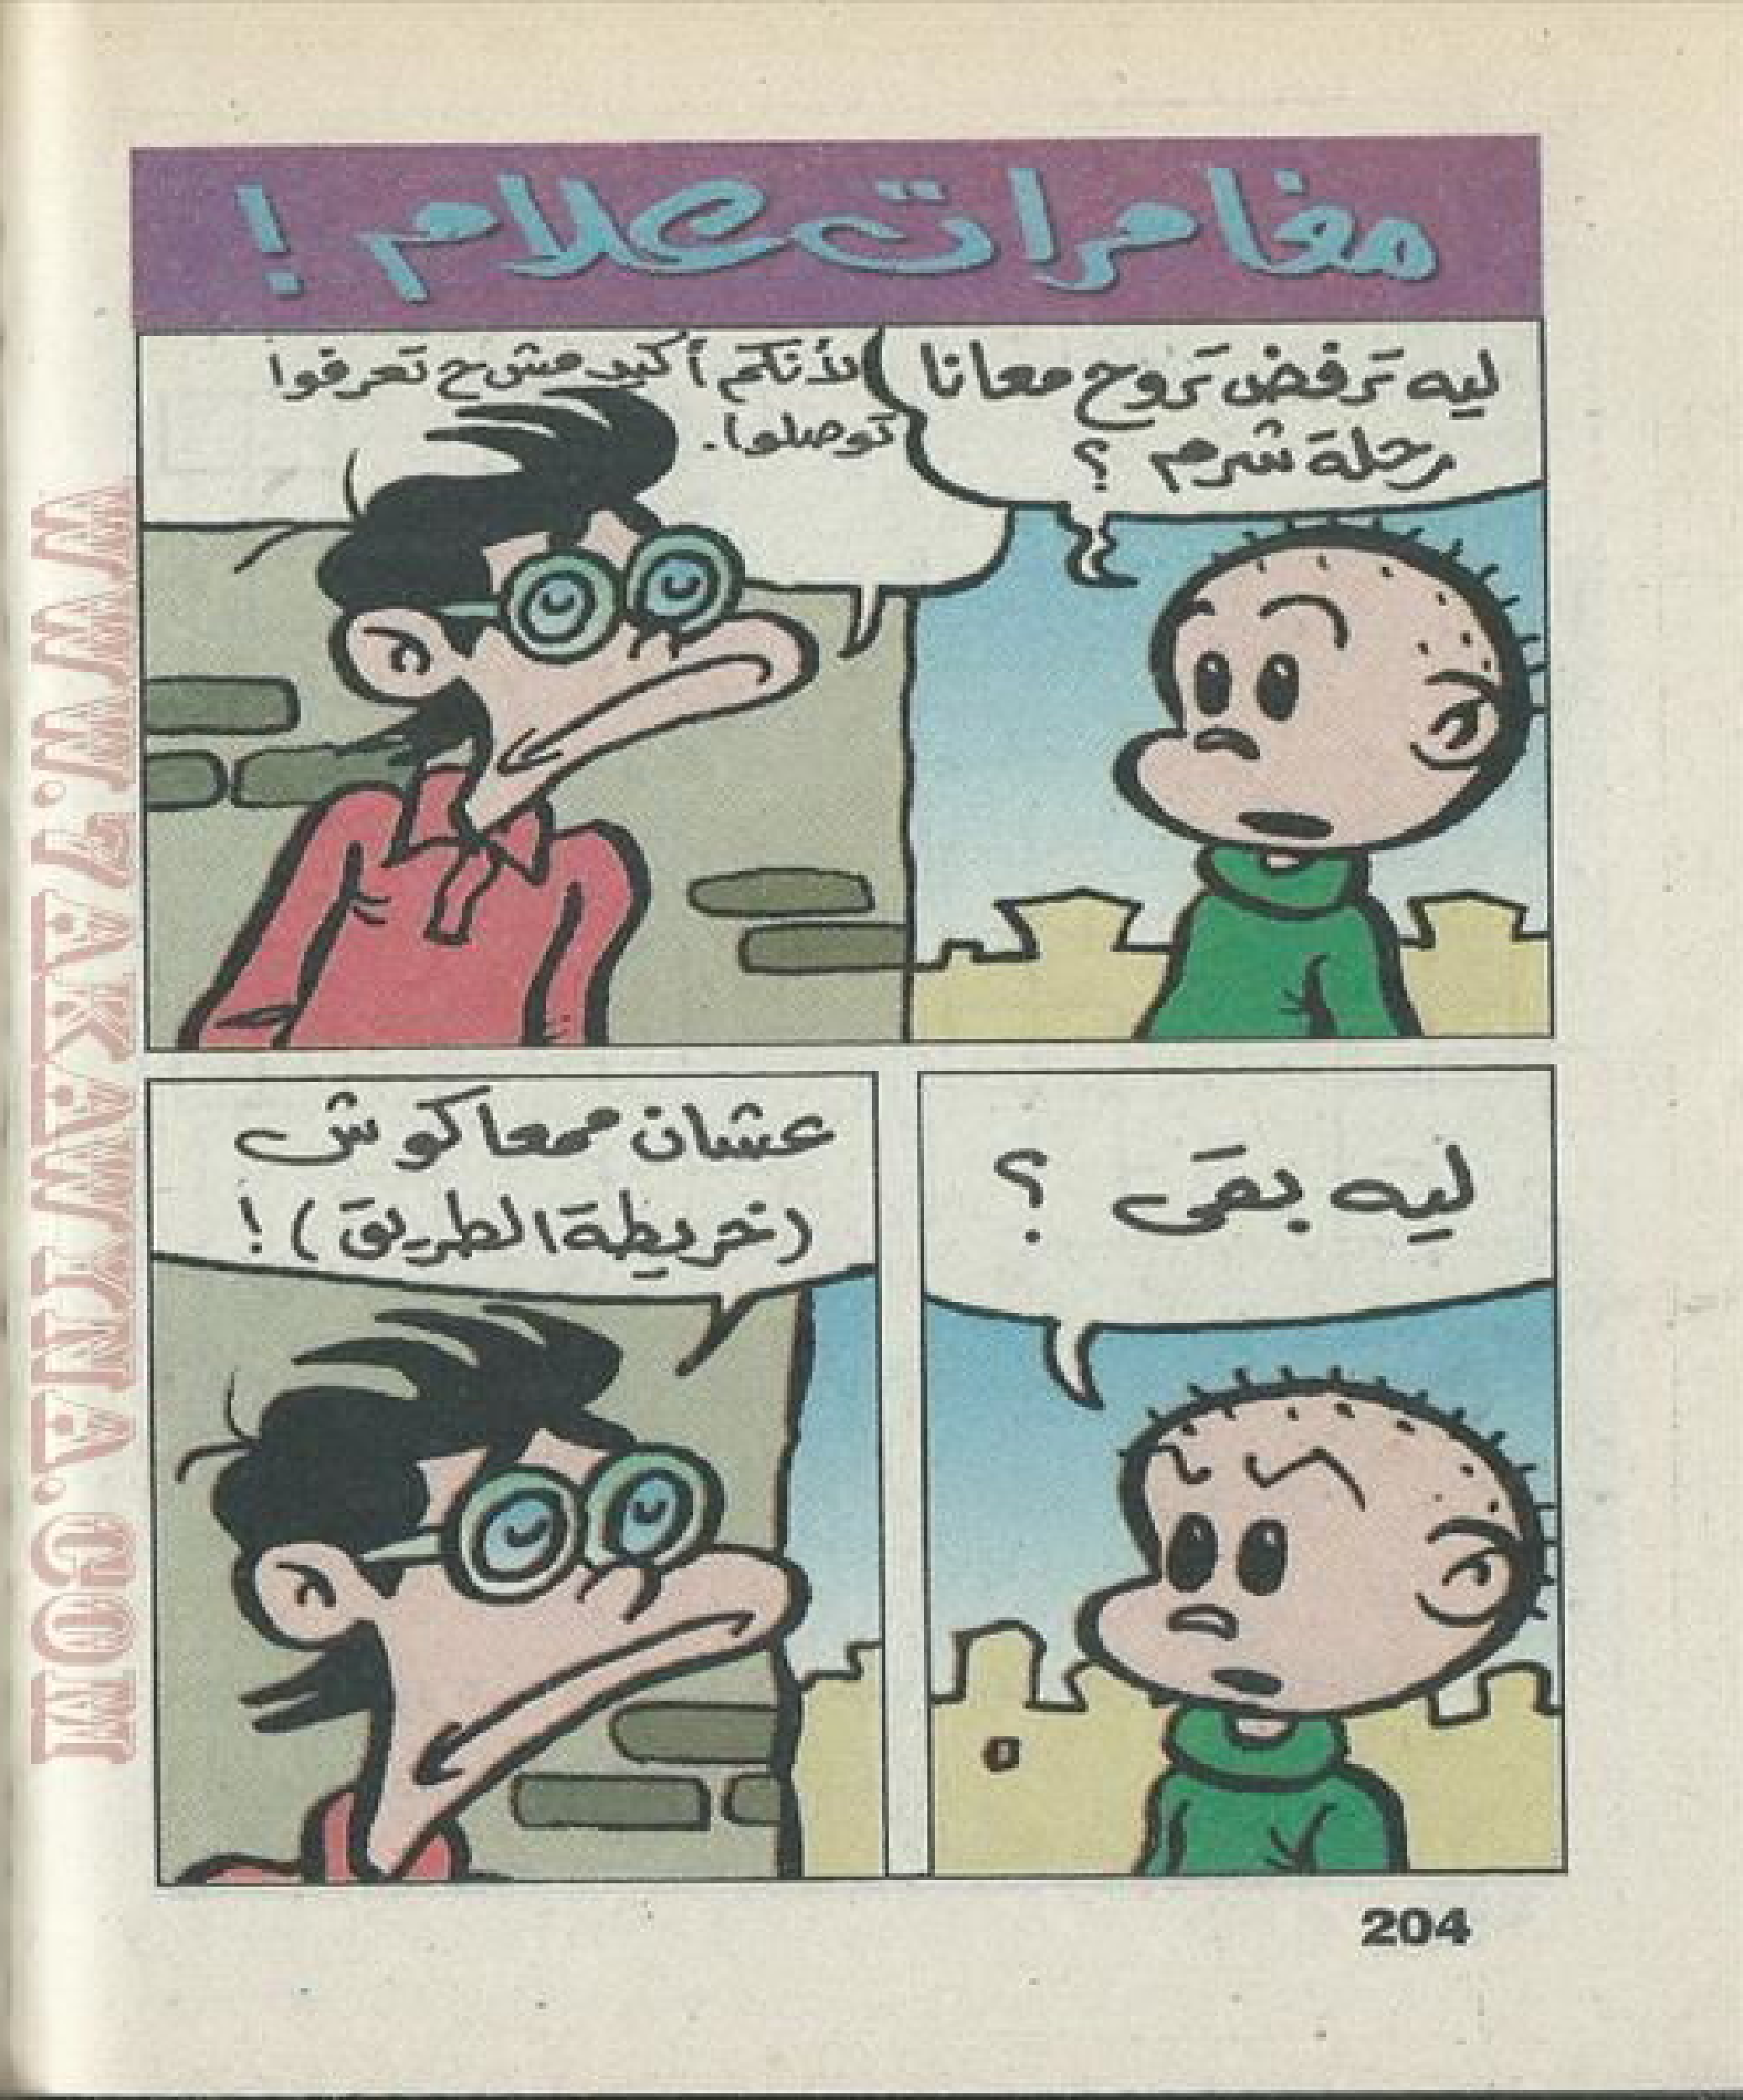 مغامرات علام !
ليه ترفض تروح معانا
رحلة شرم ؟
لأنكم أكيد مش ح تعرفوا
توصلوا.
ليه بقى ؟
عشان ممعاكوش
(خريطة الطريق) !
204
WWW.7AKAWINA.COM